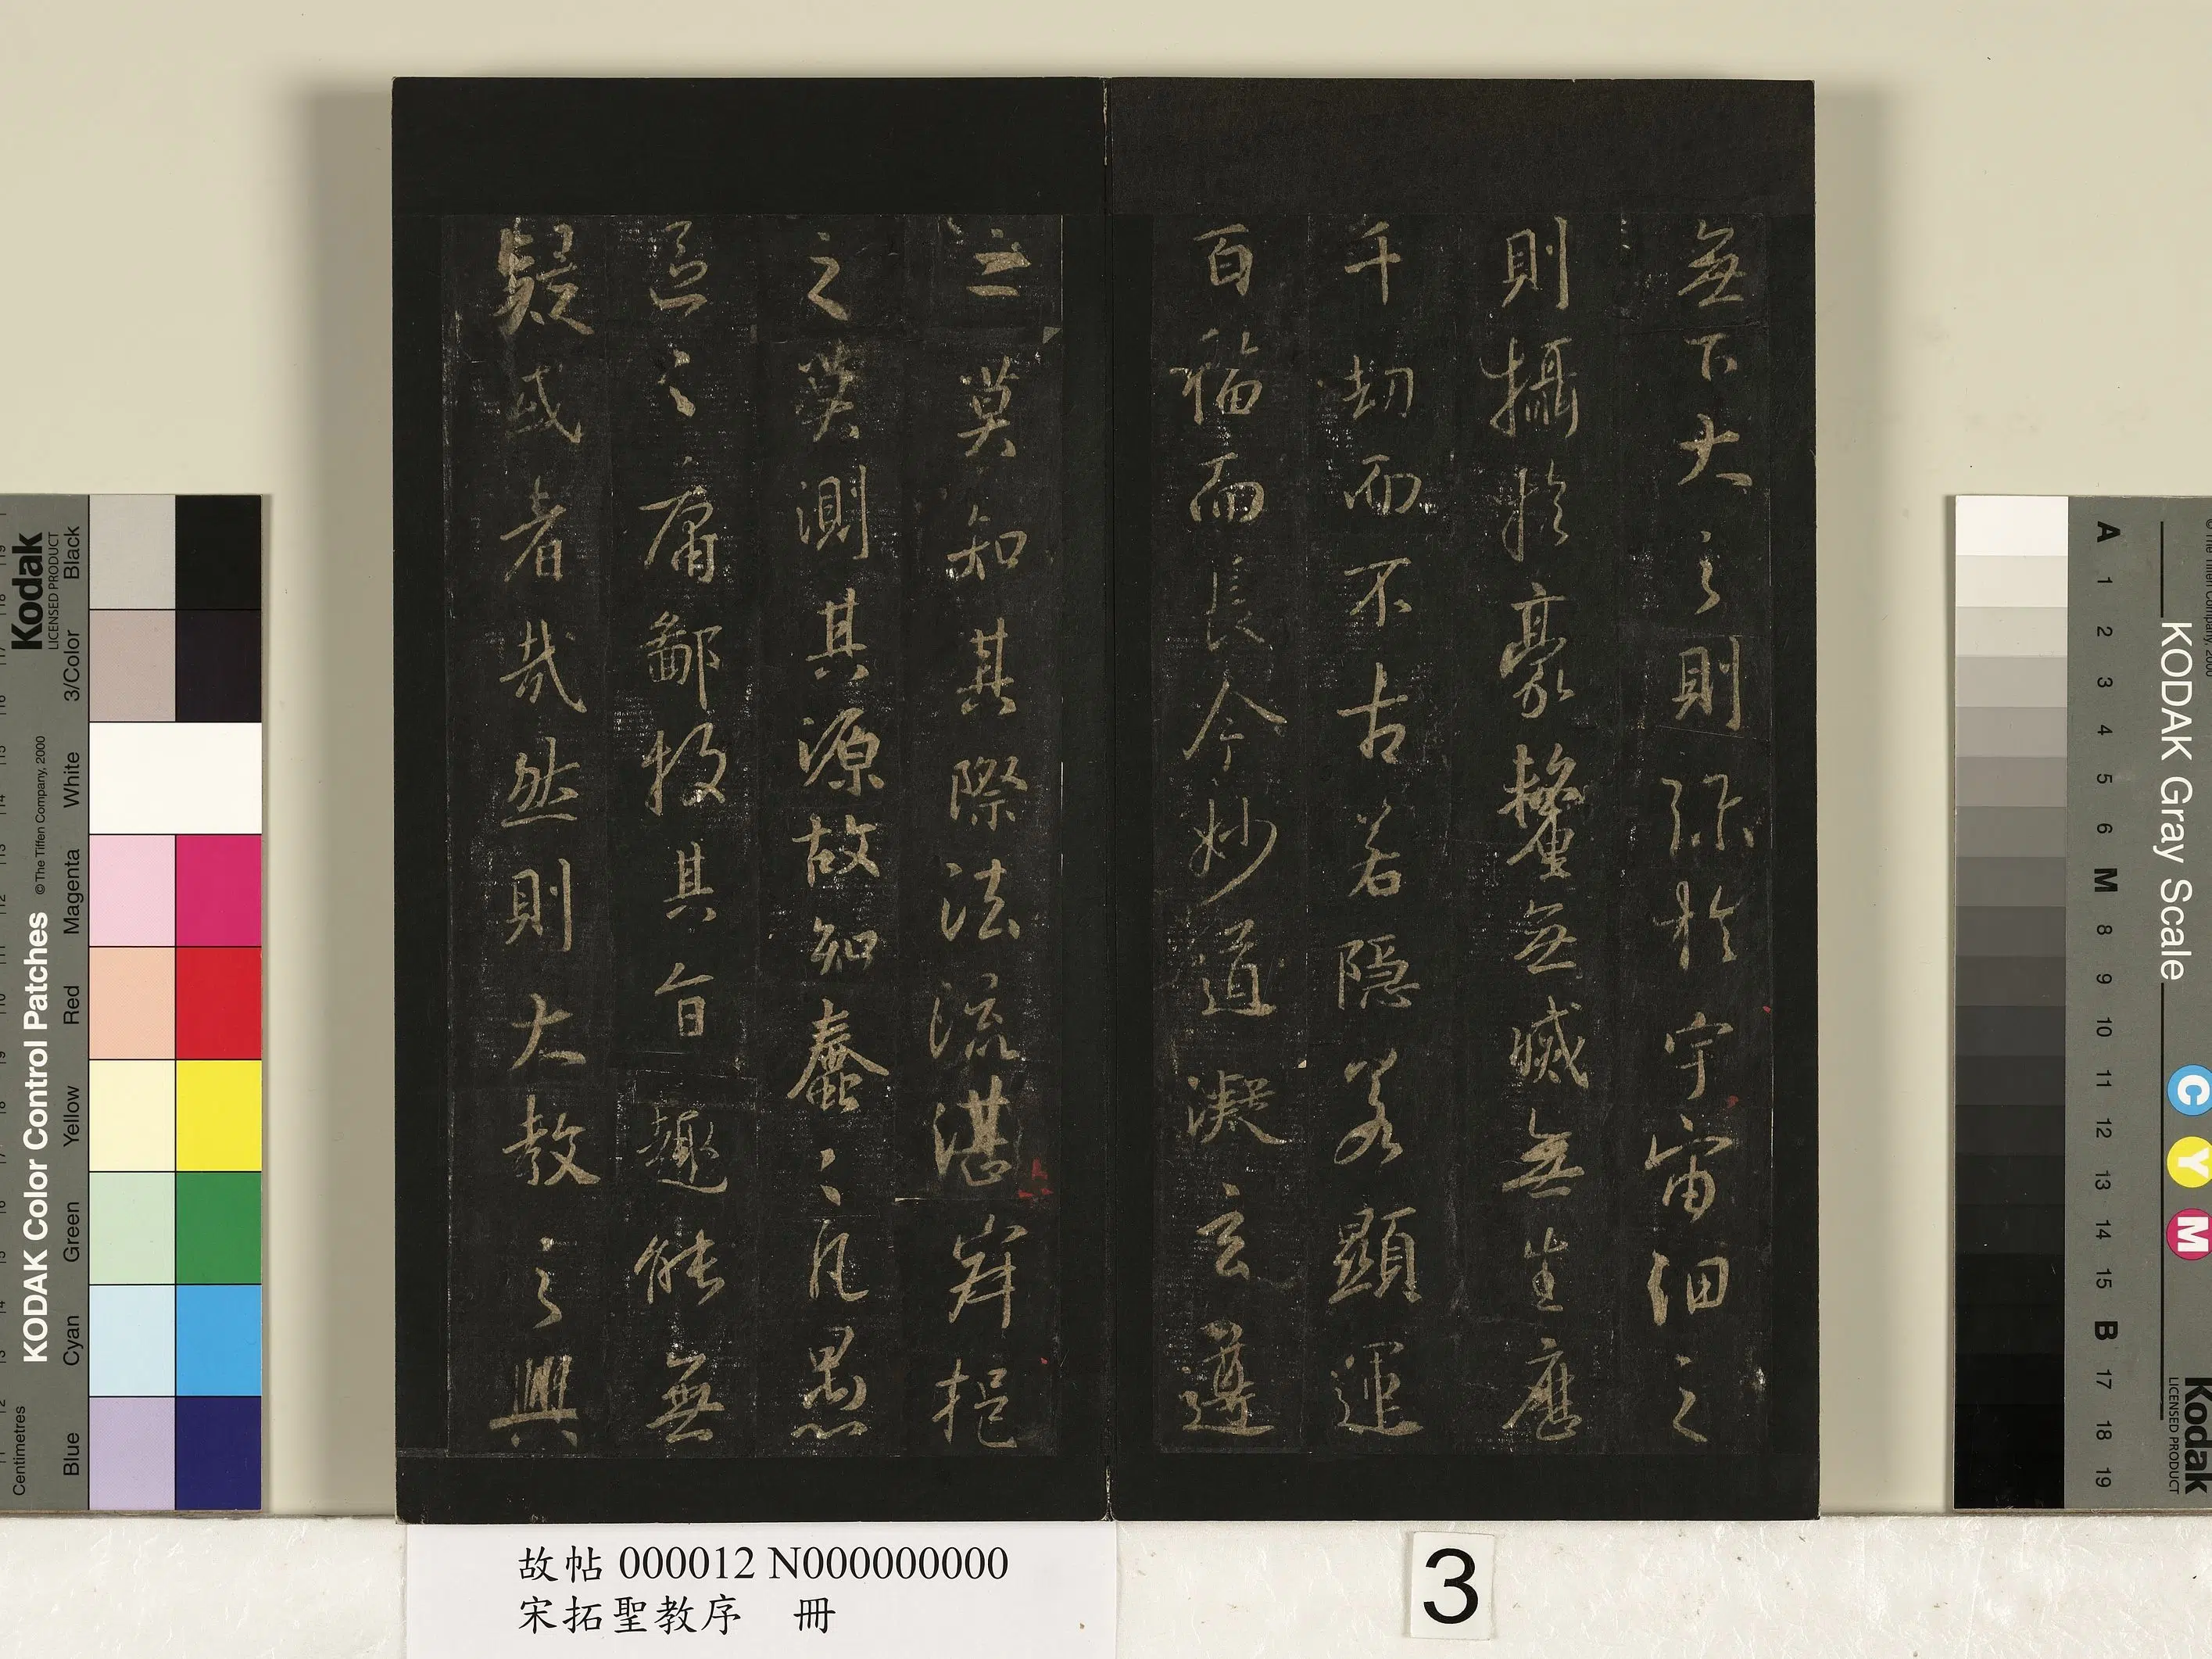 無下大之則弥於宇宙細之
則攝於豪釐無滅無生歷
千劫而不古若隱若顯運
百福而長今妙道凝玄遵
之莫知其際法流湛寂挹
之莫測其源故知蠢〻凡愚
區〻庸鄙投其旨趣能無
疑或者哉然則大教之興
故帖 000012 N000000000
宋拓聖教序 冊
3
KODAK Color Control Patches
© The Tiffen Company, 2000
Kodak
LICENSED PRODUCT
Centimetres
Blue Cyan Green Yellow Red Magenta White 3/Color Black
KODAK Gray Scale
Kodak
LICENSED PRODUCT
C Y M
A 1 2 3 4 5 6 M 8 9 10 11 12 13 14 15 B 17 18 19